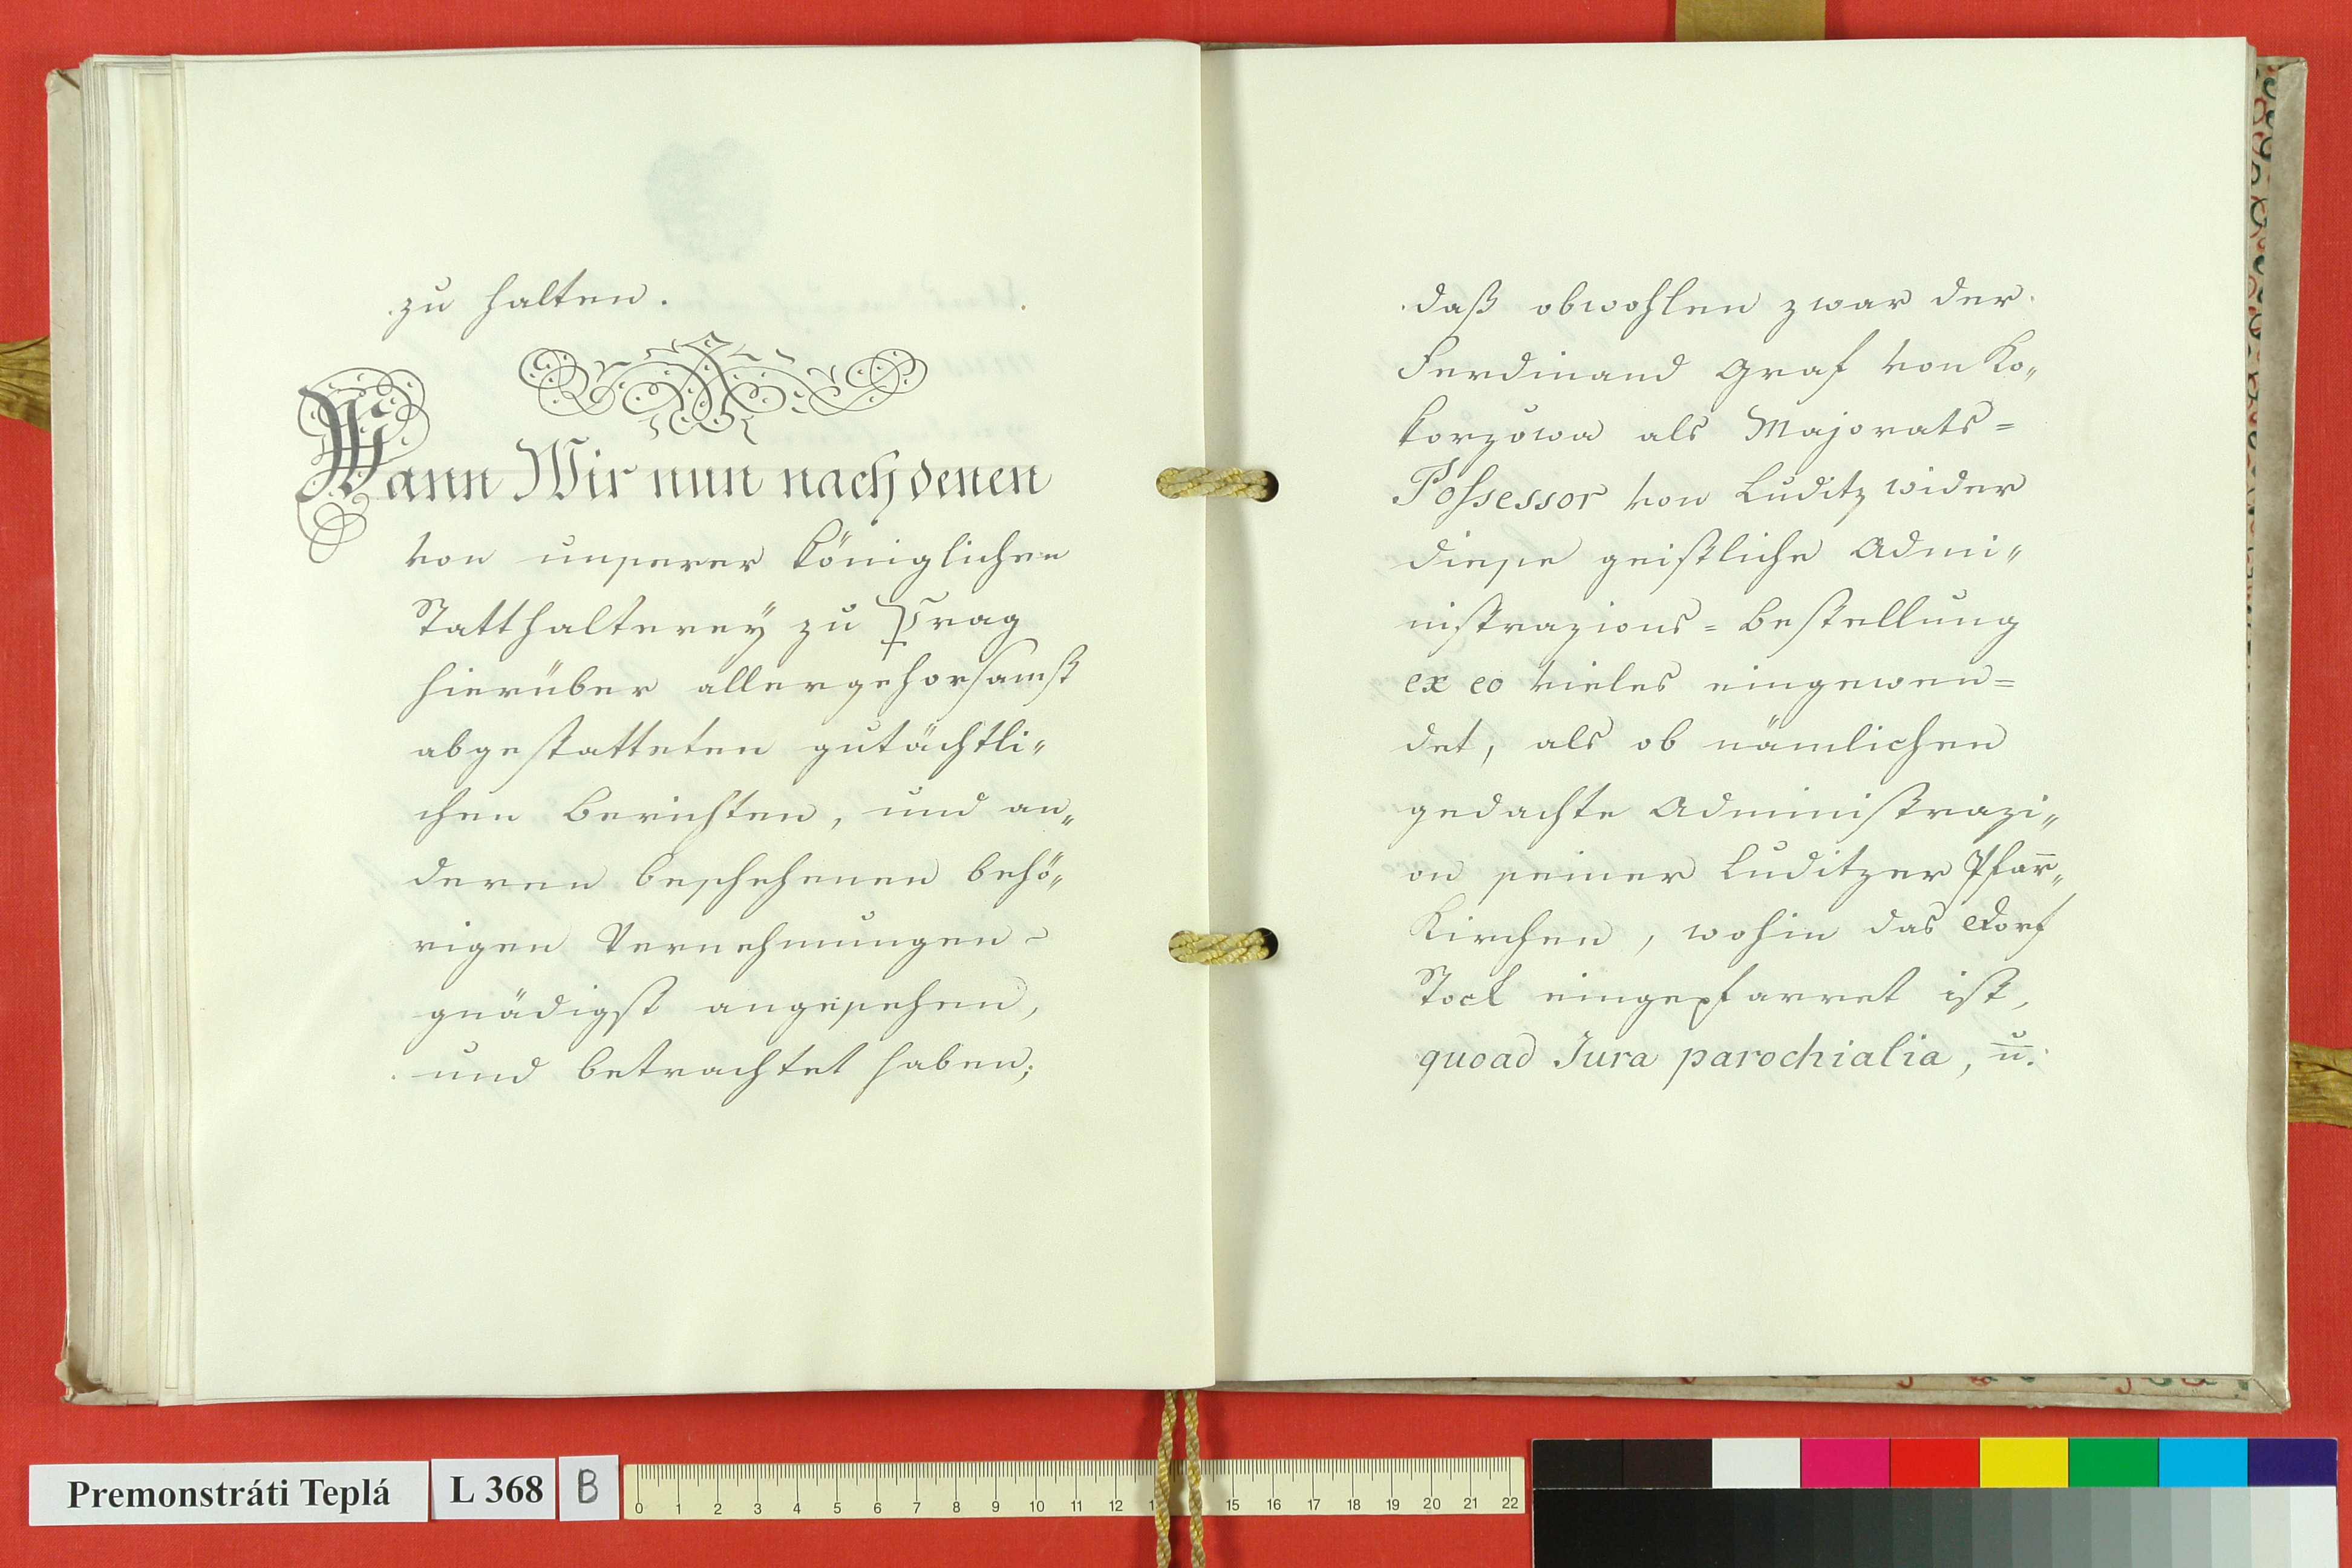 zu halten.
Wann Wir nun nach denen
von unserer Königlichen
Statthalterey zu Prag
hierüber allergehorsamst
abgestatteten gutächtli„
chen Berichten, und an„
deren beschehenen behö„
rigen Vernehmungen
gnädigst angesehen,
und betrachtet haben;
daß obwohlen zwar der
Ferdinand Graf von Ko„
korzowa als Majorats=
Possessor von Luditz wider
diese geistliche Admi„
nistrazions=Bestellung
ex eo vieles eingewen=
det, als ob nämlichen
gedachte Administrazi„
on seiner Luditzer Pfar̅„
Kirchen, wohin das Dorf
Stock eingepfarret ist,
quoad Jura parochialia, u̅.
Premonstráti Teplá L 368 B
0 1 2 3 4 5 6 7 8 9 10 11 12 13 15 16 17 18 19 20 21 22